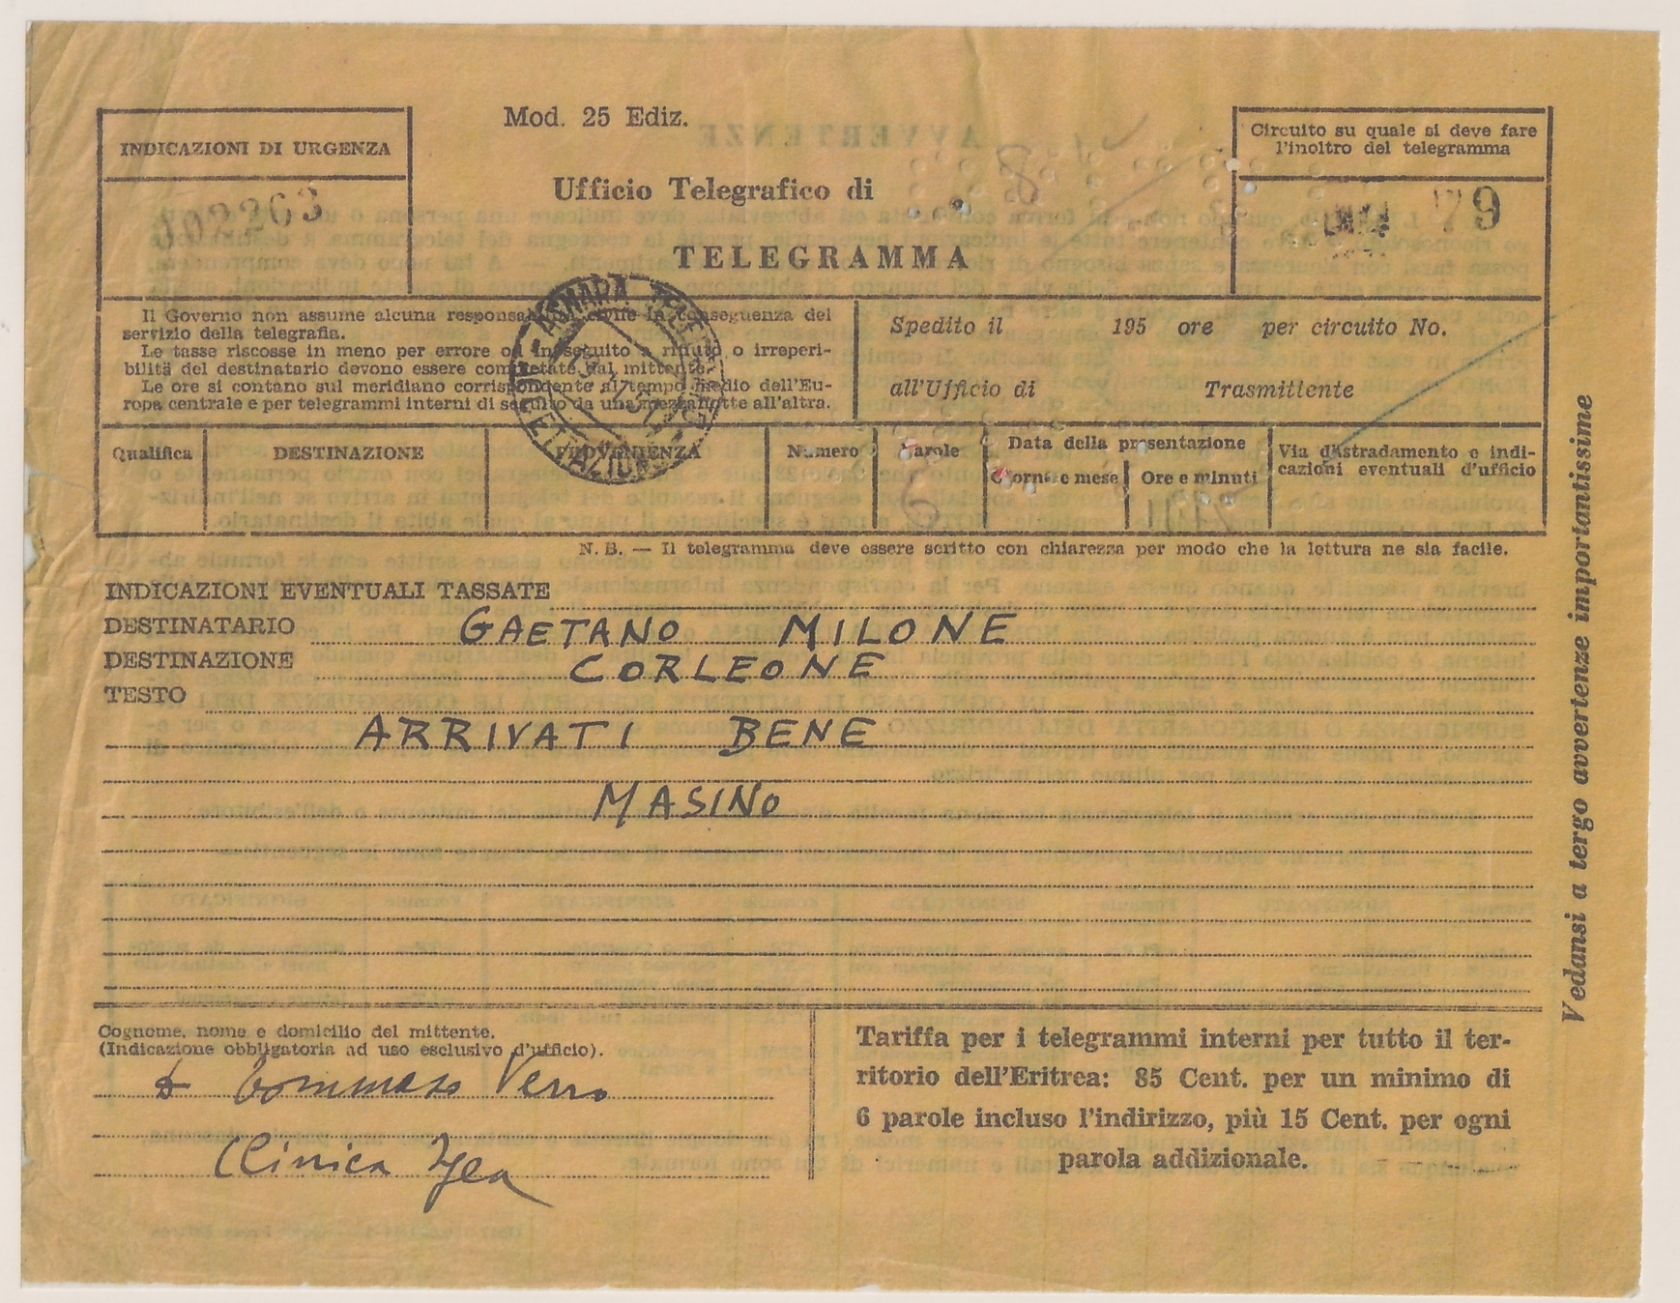 Mod. 25 Ediz.
INDICAZIONI DI URGENZA
002263
Ufficio Telegrafico di
TELEGRAMMA
Circuito su quale si deve fare
l'inoltro del telegramma
79
Il Governo non assume alcuna responsabilità civile in conseguenza del
servizio della telegrafia.
Le tasse riscosse in meno per errore od in seguito a rifiuto o irreperi-
bilità del destinatario devono essere completate dal mittente.
Le ore si contano sul meridiano corrispondente al tempo medio dell'Eu-
ropa centrale e per telegrammi interni di seguito da una mezzanotte all'altra.
Spedito il 195 ore per circuito No.
all'Ufficio di Trasmittente
ASMARA
Qualifica
DESTINAZIONE
PROVENIENZA
Numero
Parole
Data della presentazione
Giorni e mese
Ore e minuti
Via d'Istradamento e indi-
cazioni eventuali d'ufficio
6
N. B. — Il telegramma deve essere scritto con chiarezza per modo che la lettura ne sia facile.
INDICAZIONI EVENTUALI TASSATE
DESTINATARIO GAETANO MILONE
DESTINAZIONE CORLEONE
TESTO
ARRIVATI BENE
MASINO
Cognome, nome e domicilio del mittente.
(Indicazione obbligatoria ad uso esclusivo d'ufficio).
Tommaso Verro
Clinica Igea
Tariffa per i telegrammi interni per tutto il ter-
ritorio dell'Eritrea: 85 Cent. per un minimo di
6 parole incluso l'indirizzo, più 15 Cent. per ogni
parola addizionale.
Vedansi a tergo avvertenze importantissime